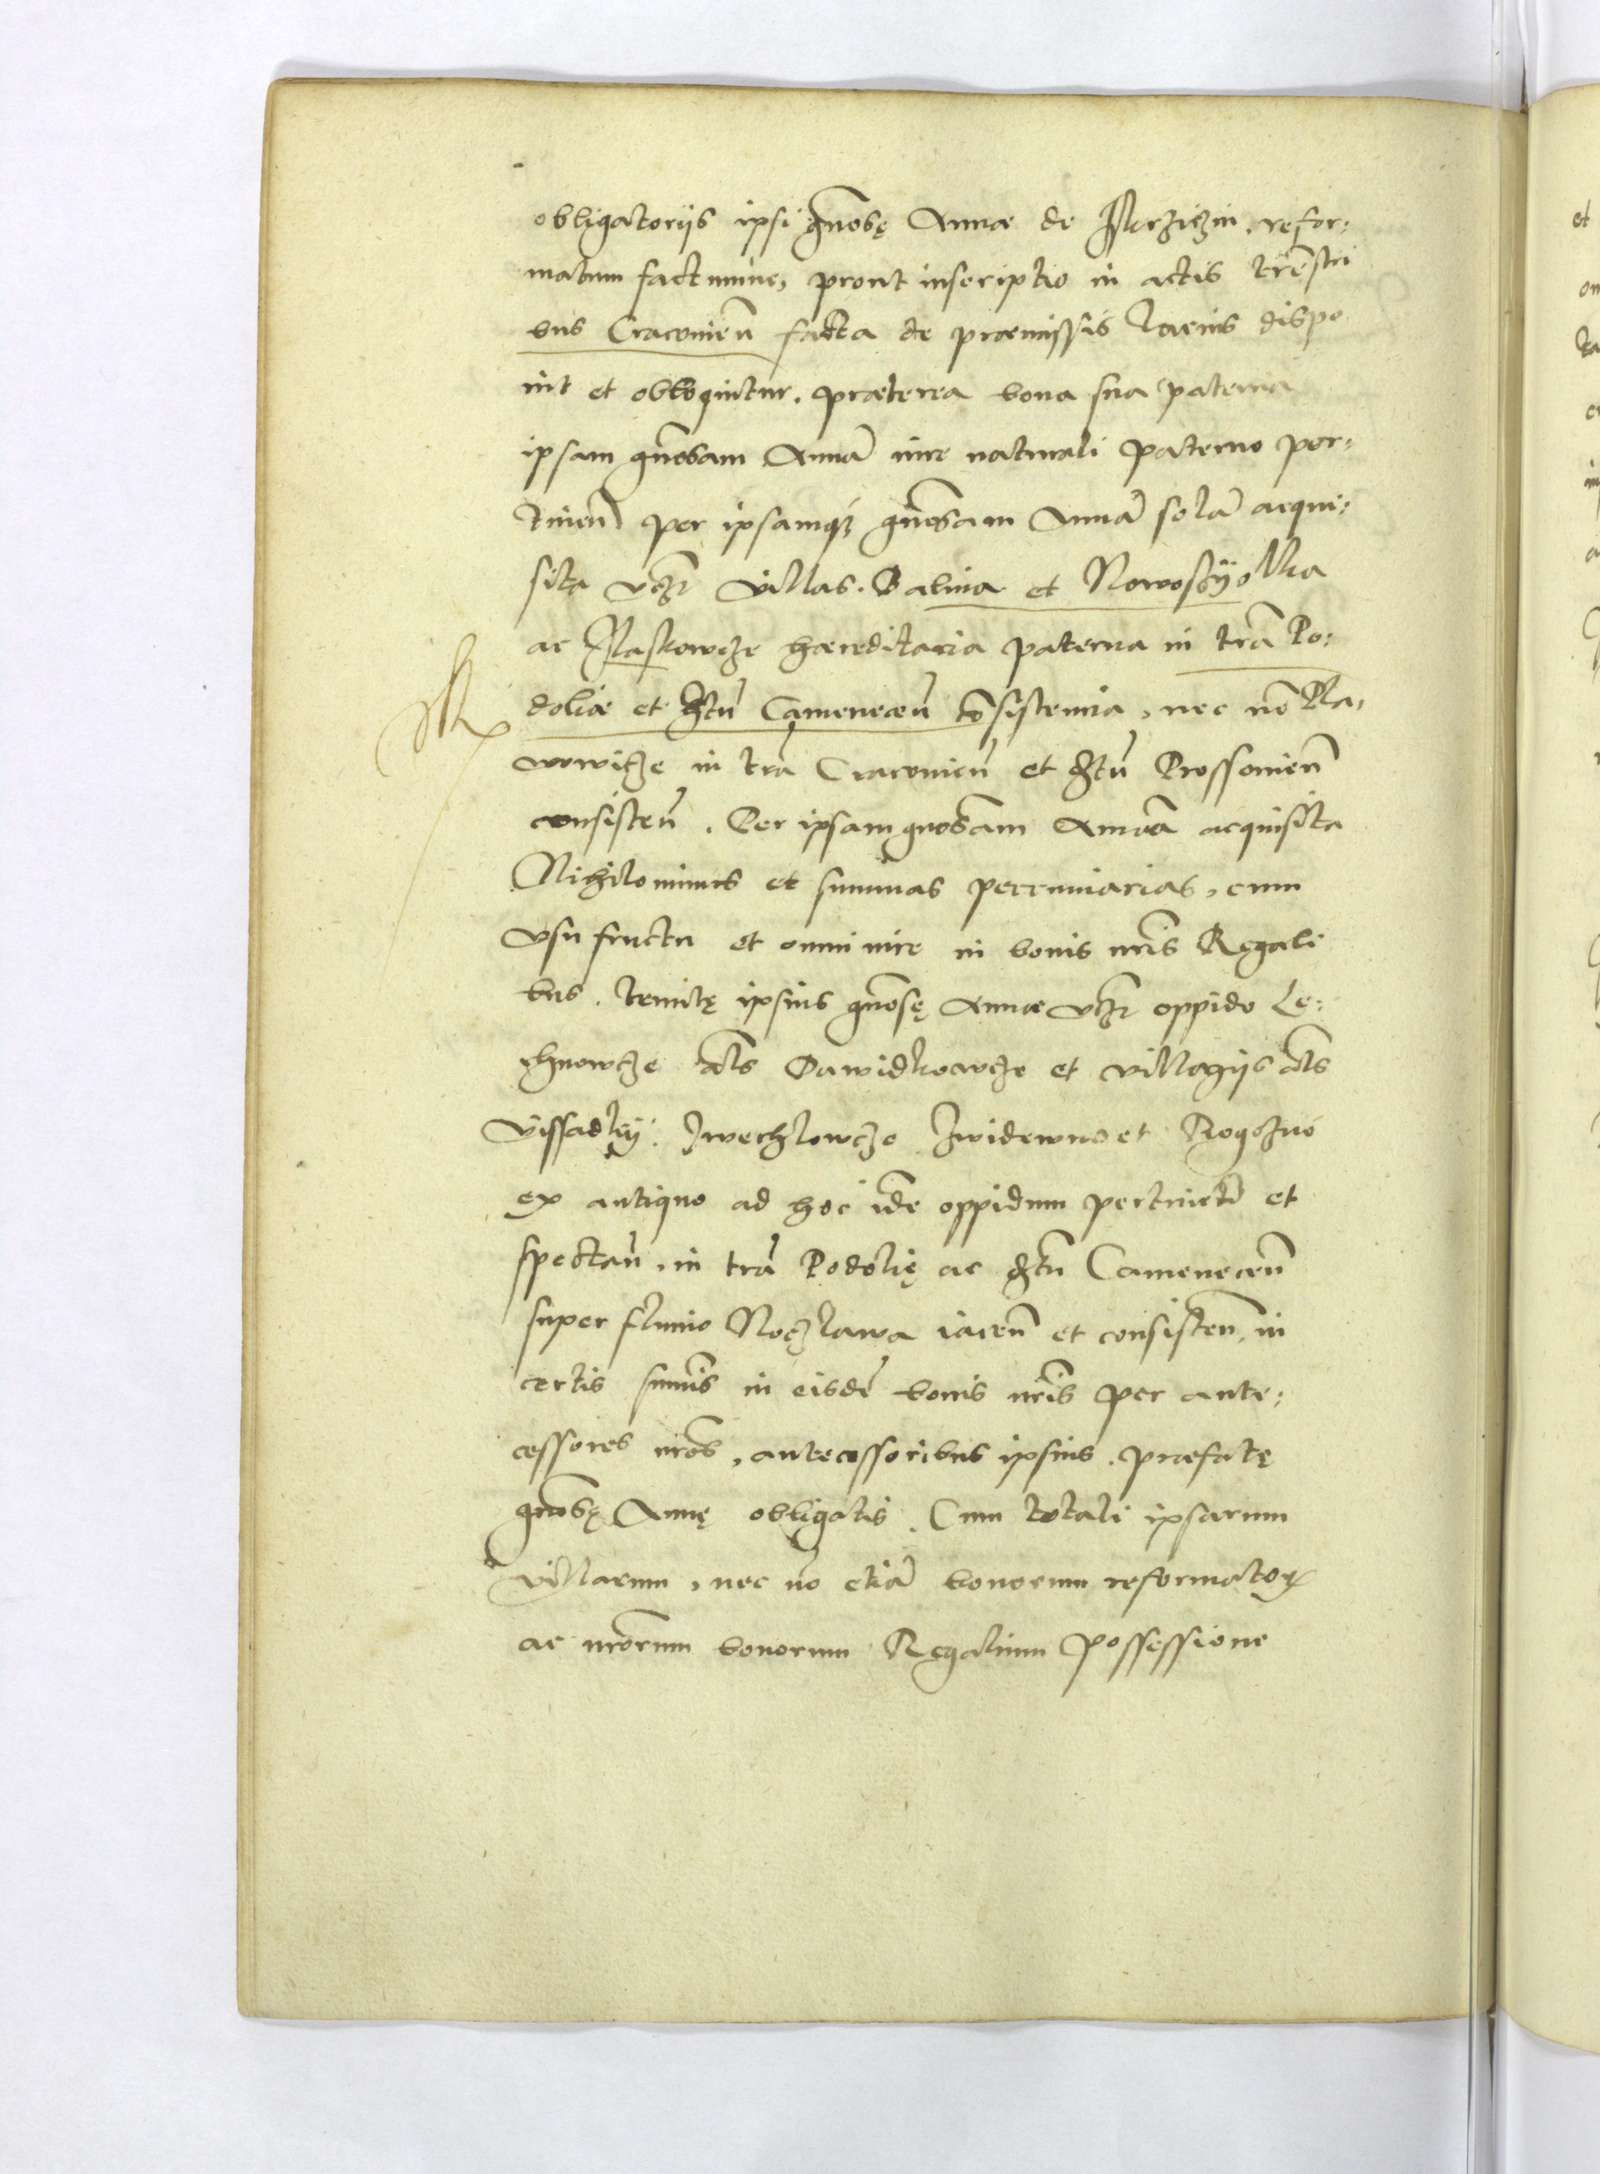 obligatoriis ipsi gnosę Annæ de refor:
matum factumue, prout inscriptio in actis trēstri
bus Craconien̄ facta de præmissis latius dispo
nit et obloquitur. Præterea bona sua paterna
ipsam gnosam Annā iure naturali paterno per:
tinen̄ per ipsamq3 gnosam Annā solā acqui:
sita vcz villas. Balina et Nowosyolka
ac Plaskowcze hæreditaria paterna in trā Po:
doliæ et dctū Camenecen̄ cōsistentia, nec nō Pla,
wowicze in trā Cracouien̄ et dctū Prossouien̄
consisten̄. Per ipsam gnosam Annam acquisita
Nihilominus et summas peccuniarias, cum
vsu fructu et omni iure in bonis nris Regali
bus. tenutę ipsius gnosę Annæ vcz oppido Le:
chnowcze als Dawidkowcze et villagiis als
Vissadky. Zwechlowcze Zwidewno et Rogozno
ex antiquo ad hoc idē oppidum pertinētibus et
spectan̄, in trā Podolię ac dctū Camenecen̄
super fluuio Noczlawa iacen̄ et consisten̄, in
certis summis in eisdē bonis nris per ante:
cessores nros, antecessoribus ipsius. præfatę
gnosę Annę obligatis. Cum totali ipsarum
villarum, nec nō etiā bonorum reformator
ac nrorum bonorum Regalium possessione